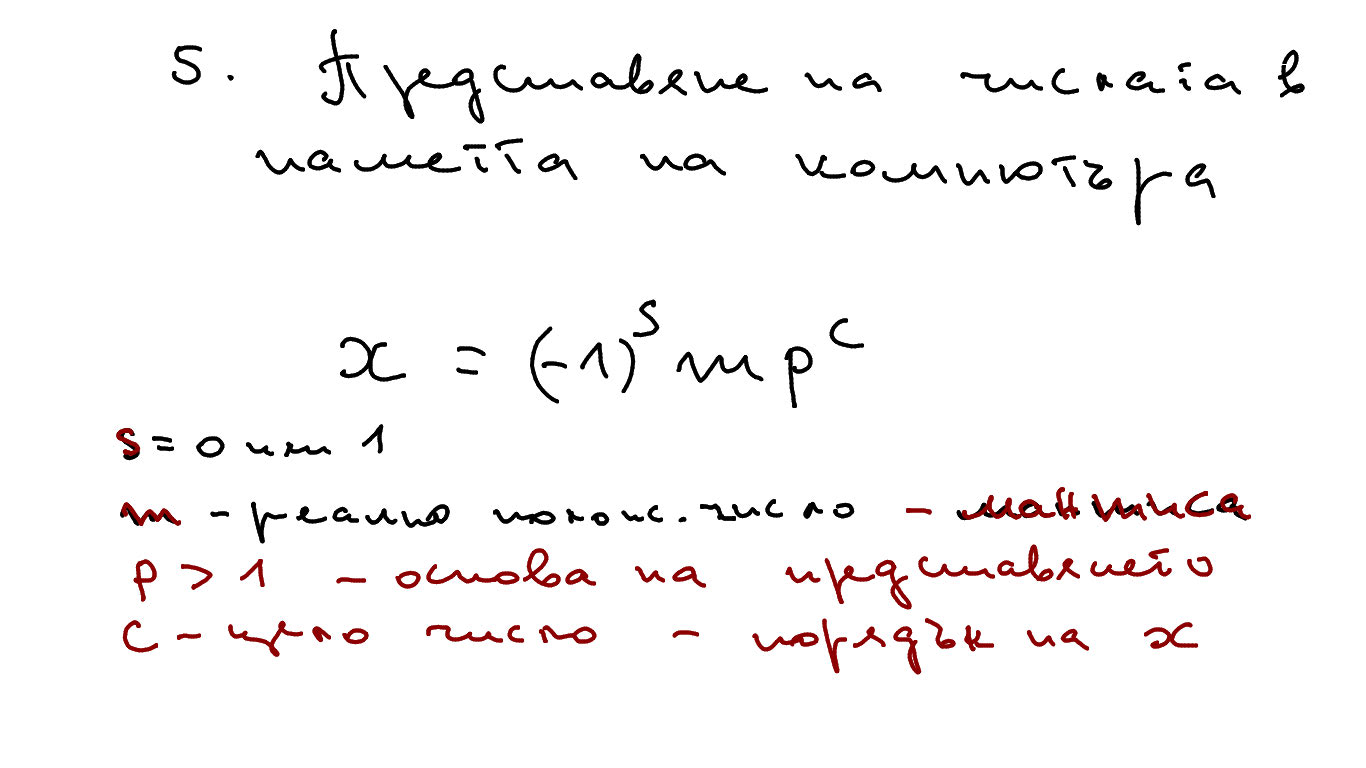 5. Представяне на числата в
паметта на компютъра
x = (-1)^s m p^c
s = 0 или 1
m - реално полож. число - мантиса
p > 1 - основа на представянето
c - цяло число - порядък на x